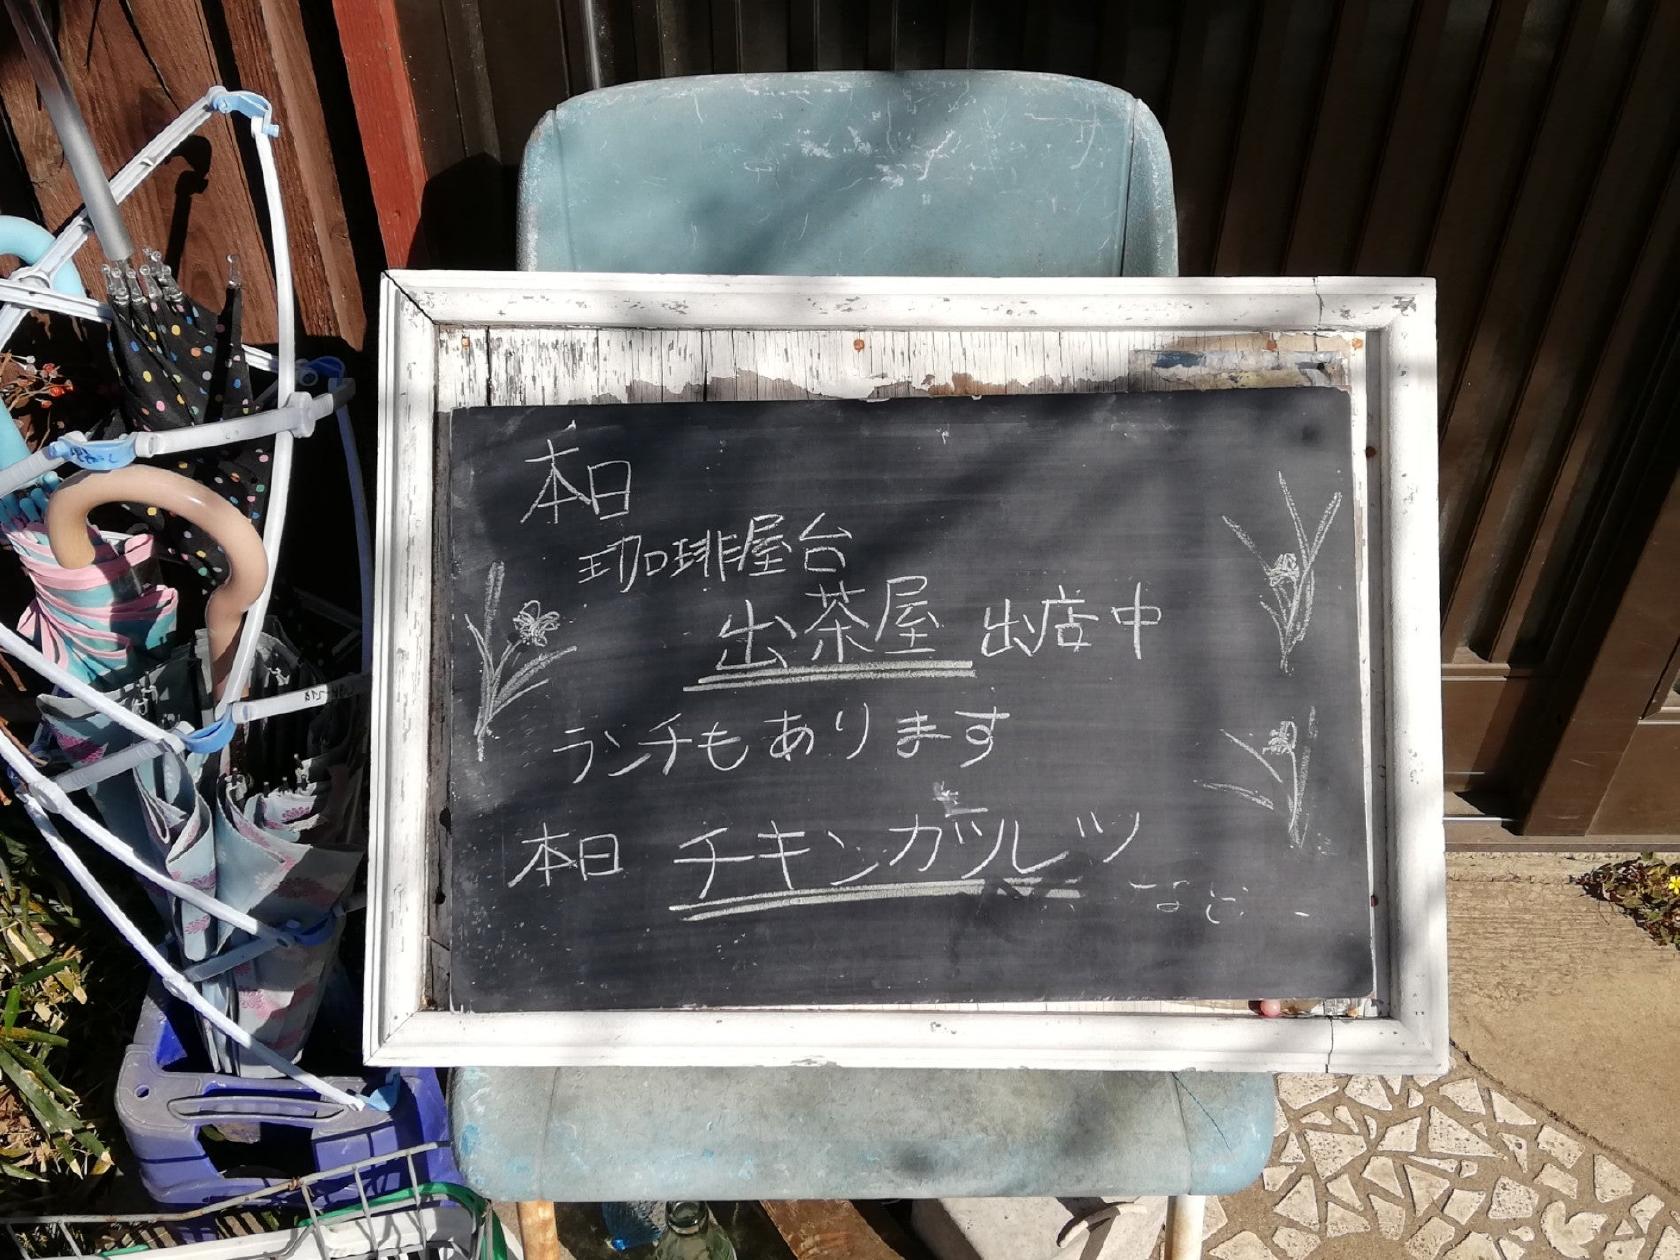 本日
珈琲屋台
出茶屋 出店中
ランチもあります
本日 チキンカツレツ
など